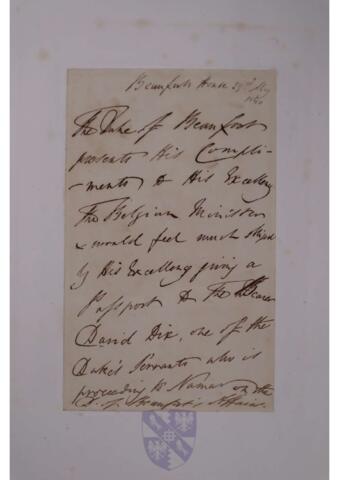 Beaufort House 29th May
1840
The Duke of Beaufort
presents His Compli-
-ments to His Excellency
The Belgian Minister
& would feel much obliged
by His Excellency giving a
Passport to The Bearer
David Dix, one of the
Duke's Servants who is
proceeding to Namur on the
D. of Beaufort's Affairs.